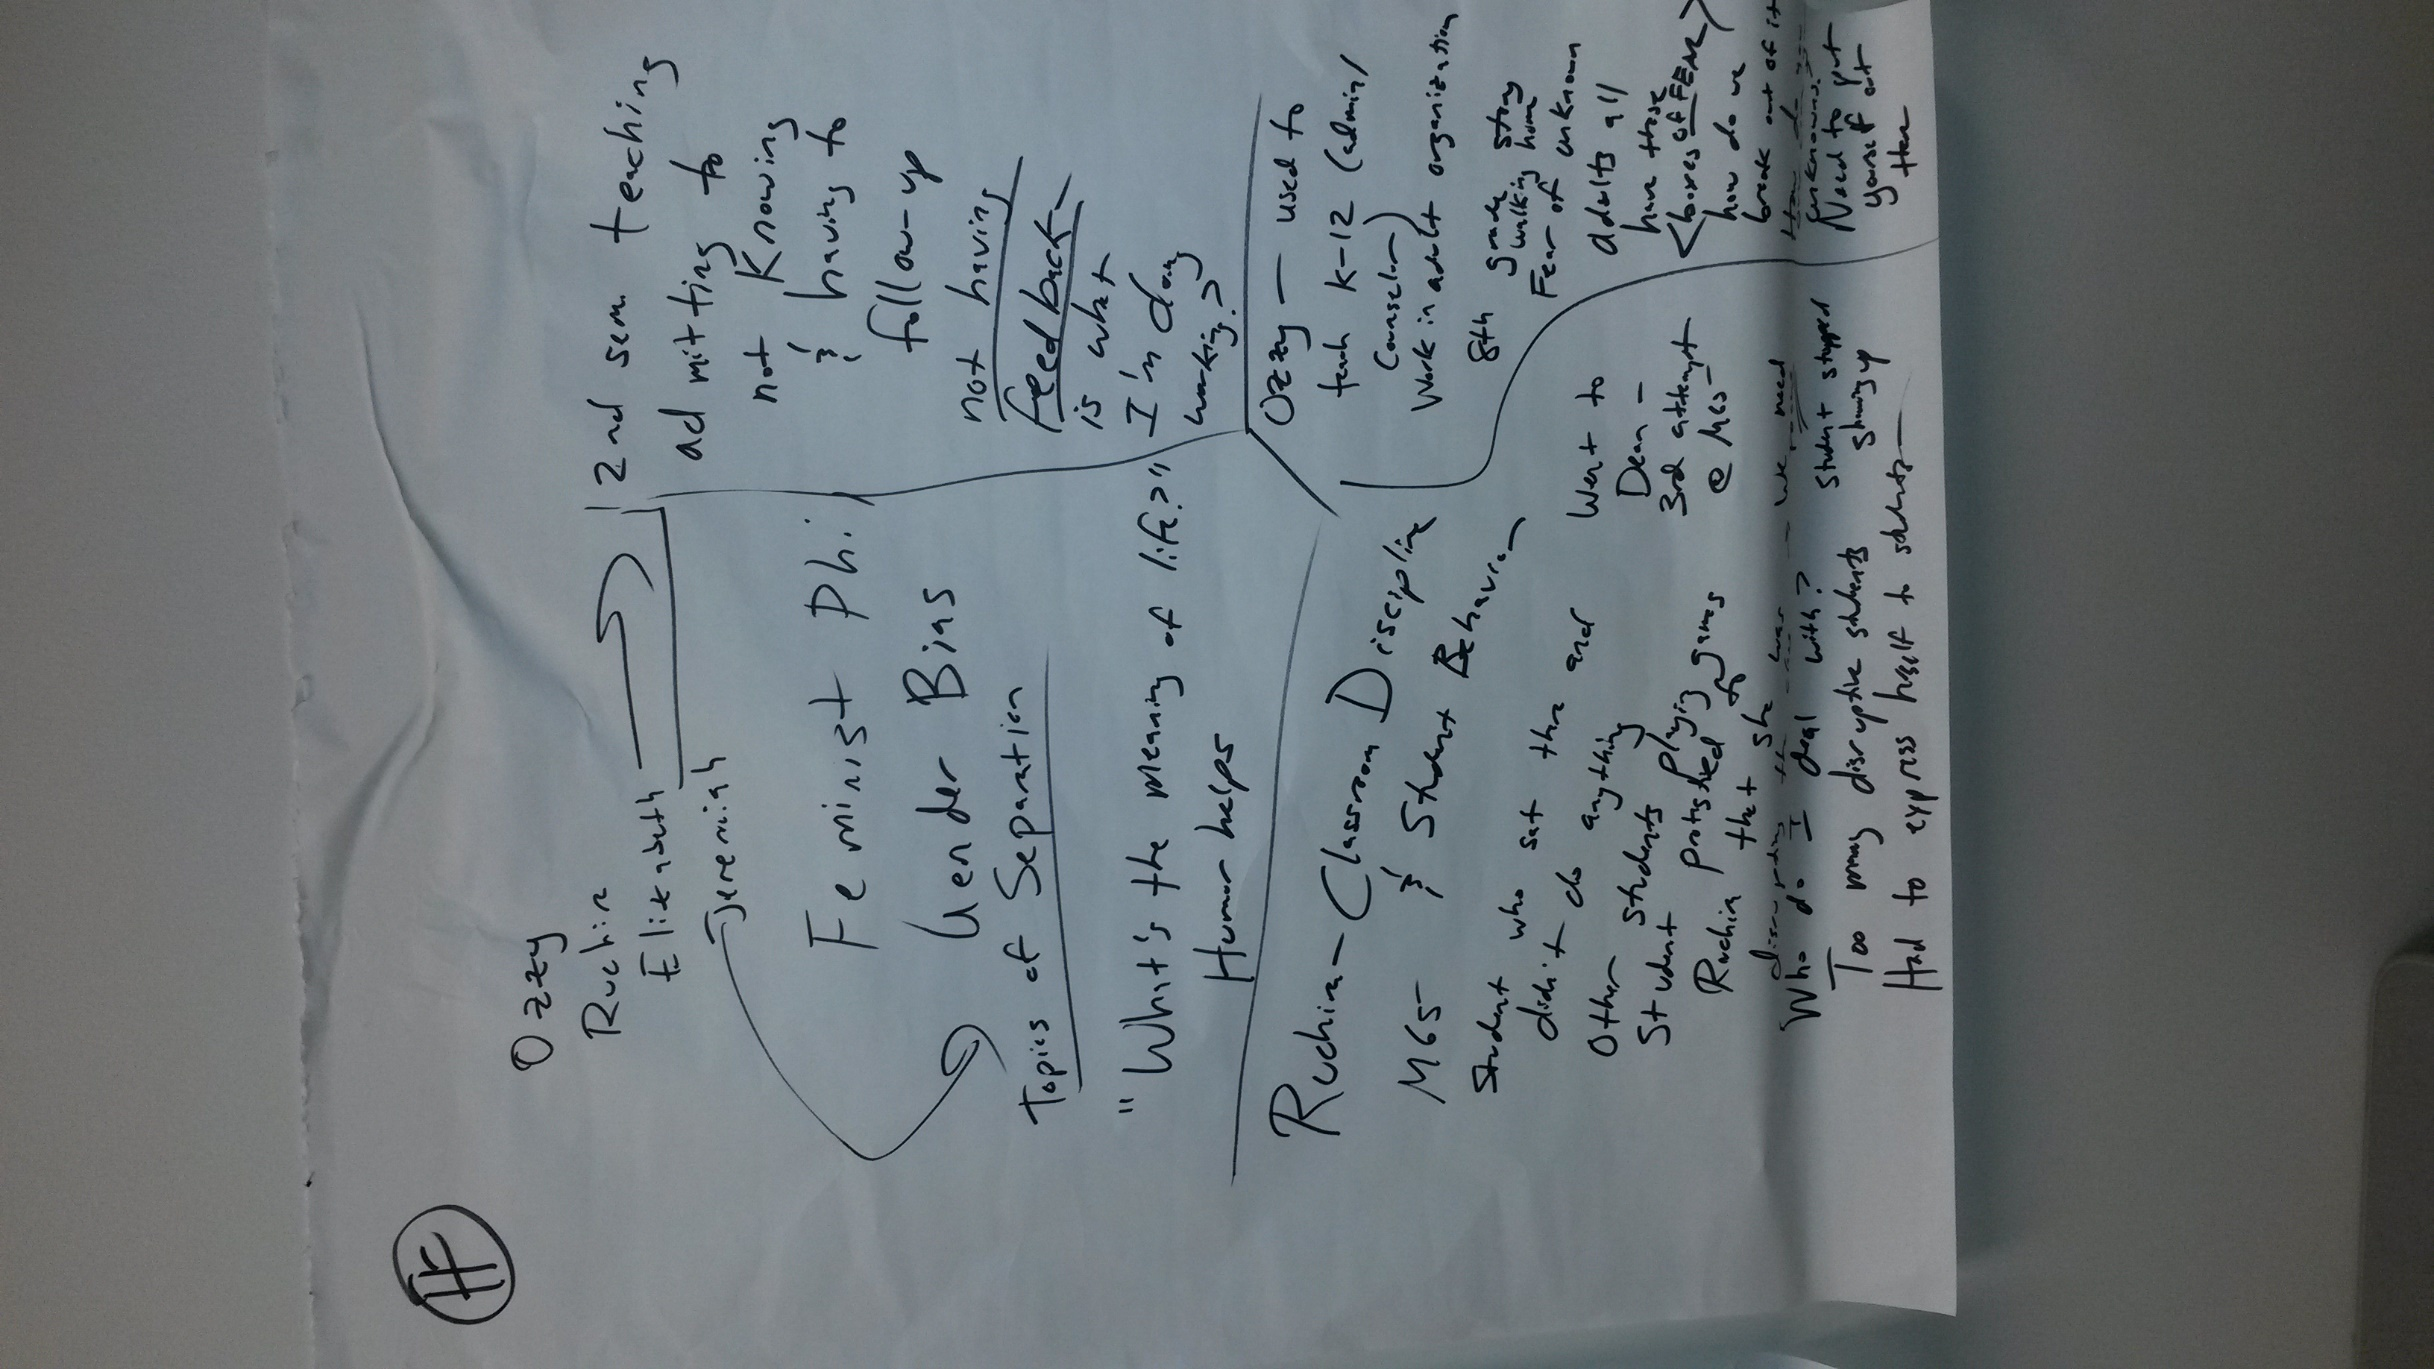 Ozzy
Ruchira
Elizabeth
Jeremiah
Feminist Phi
Gender Bias
Topics of Separation
"What's the meaning of life?"
Humor helps
2nd sem teaching
admitting to
not knowing
& having to
follow-up
not having
feedback
is what
I'm doing
working?
Ruchira - Classroom Discipline
M65 & Student Behavior
Student who sat there and
didn't do anything
Other students
Student playing games
Ruchira protested to
that she
Who do I deal with?
Too many disruptive students
Had to express hself to students
Went to
Dean -
3rd attempt
@ M65 -
We need
student stopped
showing up
Ozzy - used to
teach K-12 (admin/
Counselor)
Work in adult organization
8th grade story
walking home
Fear of unknown
adults all
have these
<boxes of FEAR>
how do we
break out of it
unknowns?
Need to put
yourself out
there